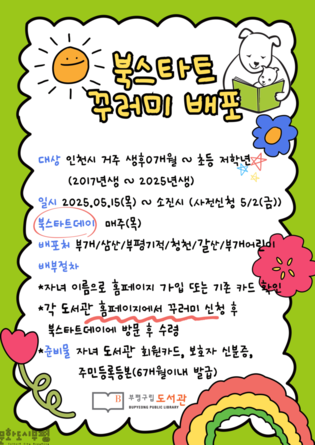 북스타트
꾸러미 배포
대상 인천시 거주 생후0개월 ~ 초등 저학년
(2017년생 ~ 2025년생)
일시 2025.05.15(목) ~ 소진시 (사전신청 5/2(금))
북스타트데이 매주(목)
배포처 부개/삼산/부평기적/청천/갈산/부개어린이
배부절차
*자녀 이름으로 홈페이지 가입 또는 기존 카드 확인
*각 도서관 홈페이지에서 꾸러미 신청 후
북스타트데이에 방문 후 수령
*준비물 자녀 도서관 회원카드, 보호자 신분증,
주민등록등본(6개월이내 발급)
B
부평구립 도서관
BUPYEONG PUBLIC LIBRARY
문화도시부평